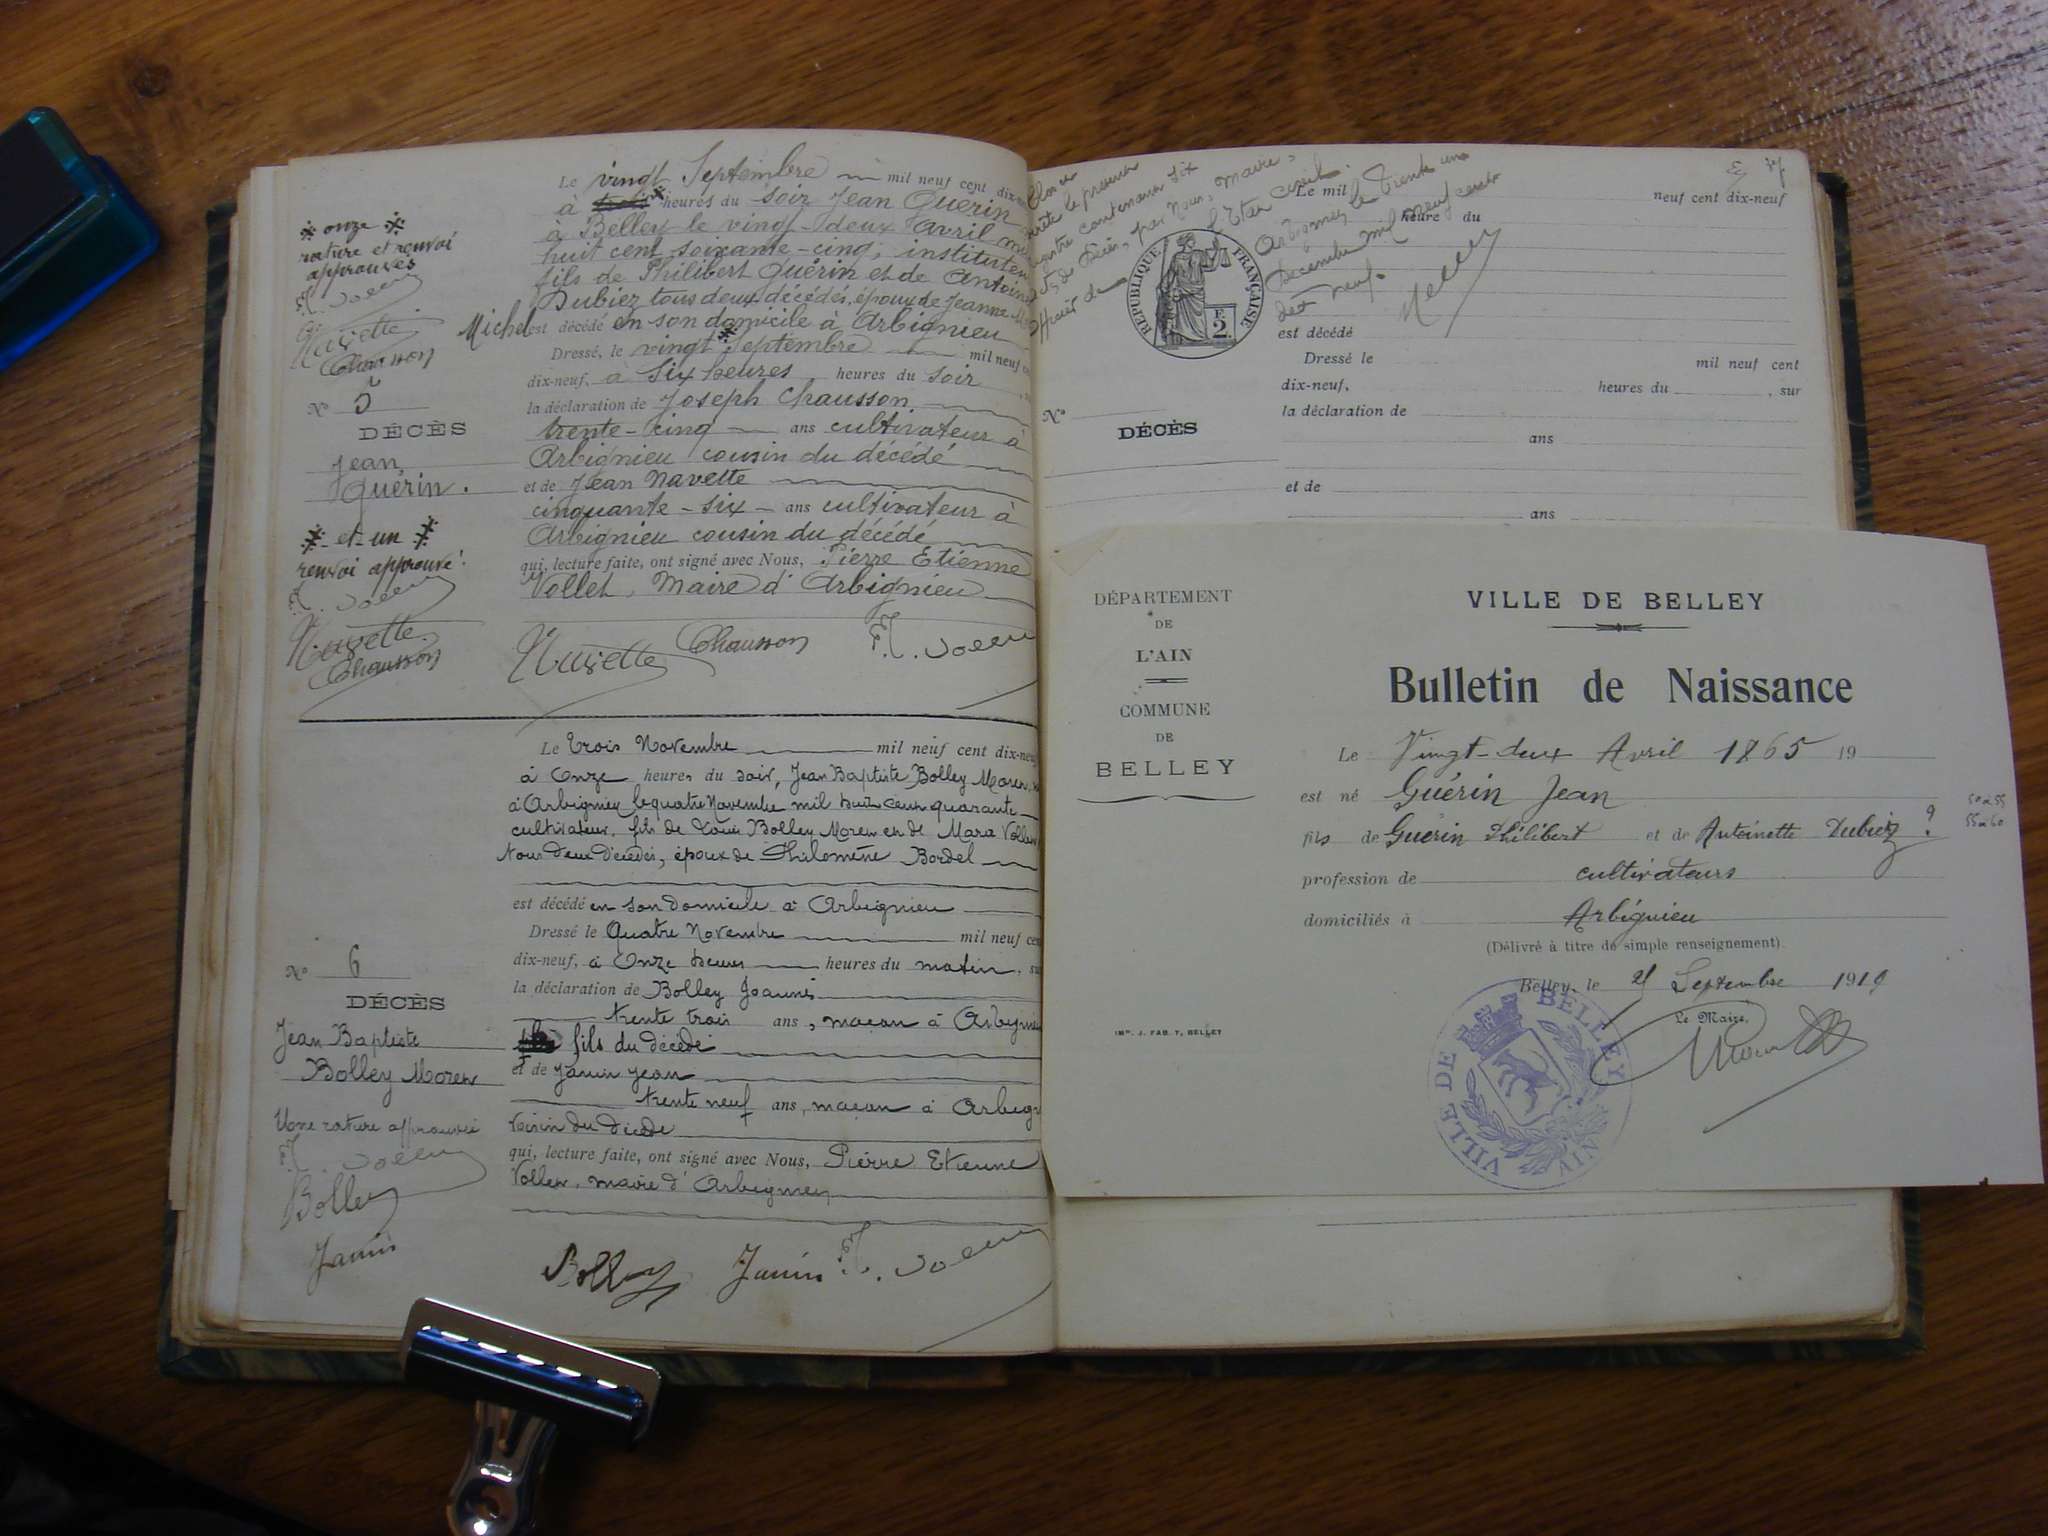 Le vingt Septembre mil neuf cent dix-neuf
à heures du soir Jean Guérin
à Belley le vingt-deux Avril mil
huit cent soixante-cinq, instituteur
fils de Philibert Guérin et de Antoinette
Dubiez tous deux décédés, époux de Jeanne
Michel est décédé en son domicile à Arbignieu
Dressé, le vingt Septembre mil neuf cent
dix-neuf, à Six heures, heures du soir
la déclaration de Joseph Chausson
trente-cinq ans cultivateur à
Arbignieu cousin du décédé
et de Jean Navette
cinquante-six ans cultivateur à
Arbignieu cousin du décédé
qui, lecture faite, ont signé avec Nous, Pierre Etienne
Vollet, Maire d'Arbignieu
Navette Chausson E. Vollet
※ onze ※
rature et renvoi
approuvés
E. Vollet
Navette
Chausson
N° 5
DÉCÈS
Jean
Guérin.
※ et un ※
renvoi approuvé.
E. Vollet
Navette
Chausson
Le trois Novembre mil neuf cent dix-neuf
à Onze heures du soir, Jean Baptiste Bolley Moren
à Arbignieu le quatre Novembre mil huit cent quarante
cultivateur, fils de Louis Bolley Moren et de Vollet
tous deux décédés, époux de Philomène Bordel
est décédé en son domicile à Arbignieu
Dressé le Quatre Novembre mil neuf cent
dix-neuf, à Onze heures heures du matin, sur
la déclaration de Bolley Joannès
trente trois ans, maçon à Arbignieu
fils du décédé
et de Janin Jean
trente neuf ans, maçon à Arbignieu
voisin du décédé
qui, lecture faite, ont signé avec Nous, Pierre Etienne
Vollet, maire d'Arbignieu
Bolley Janin E. Vollet
N° 6
DÉCÈS
Jean Baptiste
Bolley Moren
Une rature approuvée
E. Vollet
Bolley
Janin
Clos et
arrêté le présent
registre contenant six
actes de Décès, par Nous, Maire,
officier de l'Etat civil.
Arbignieu, le trente un
Décembre mil neuf cent
dix neuf.
Vollet
RÉPUBLIQUE FRANÇAISE
F.
2.
Le mil neuf cent dix-neuf
heure du
est décédé
Dressé le mil neuf cent
dix-neuf, heures du , sur
la déclaration de
ans
et de
ans
N°
DÉCÈS
DÉPARTEMENT
DE
L'AIN
COMMUNE
DE
BELLEY
VILLE DE BELLEY
Bulletin de Naissance
Le Vingt-deux Avril 1865 19
est né Guérin Jean
fils de Guérin Philibert et de Antoinette Dubiez ?
profession de cultivateurs
domiciliés à Arbignieu
(Délivré à titre de simple renseignement).
Belley, le 21 Septembre 1919
Le Maire,
VILLE DE BELLEY
BELLEY (AIN)
50 à 55
55 à 60